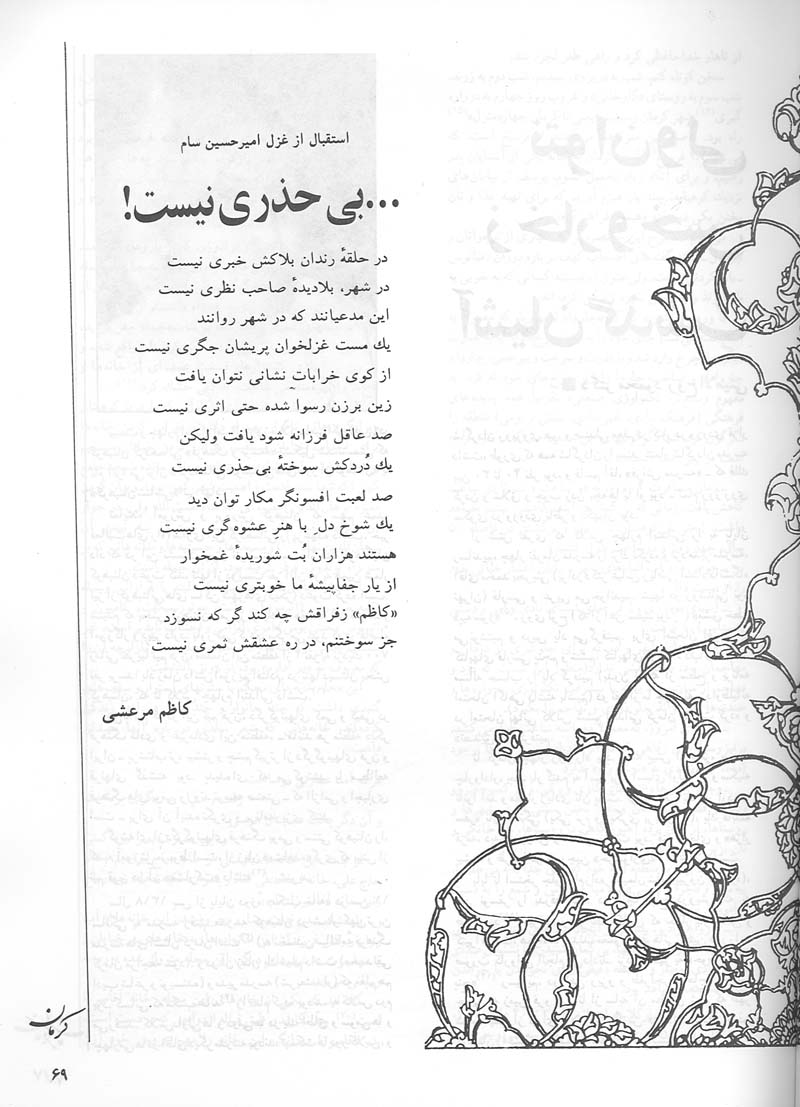 استقبال از غزل امیرحسین سام
...بی حذری نیست!
در حلقهٔ رندان بلاکش خبری نیست
در شهر، بلادیدهٔ صاحب نظری نیست
این مدعیانند که در شهر روانند
یك مست غزلخوان پریشان جگری نیست
از کوی خرابات نشانی نتوان یافت
زین برزن رسوا شده حتی اثری نیست
صد عاقل فرزانه شود یافت ولیکن
یك دُردکش سوختهٔ بی‌حذری نیست
صد لعبت افسونگر مکار توان دید
یك شوخ دلِ با هنرِ عشوه گری نیست
هستند هزاران بُت شوریدهٔ غمخوار
از یار جفاپیشهٔ ما خوبتری نیست
«کاظم» زفراقش چه کند گر که نسوزد
جز سوختنم، در ره عشقش ثمری نیست
کاظم مرعشی
کرمان
۶۹